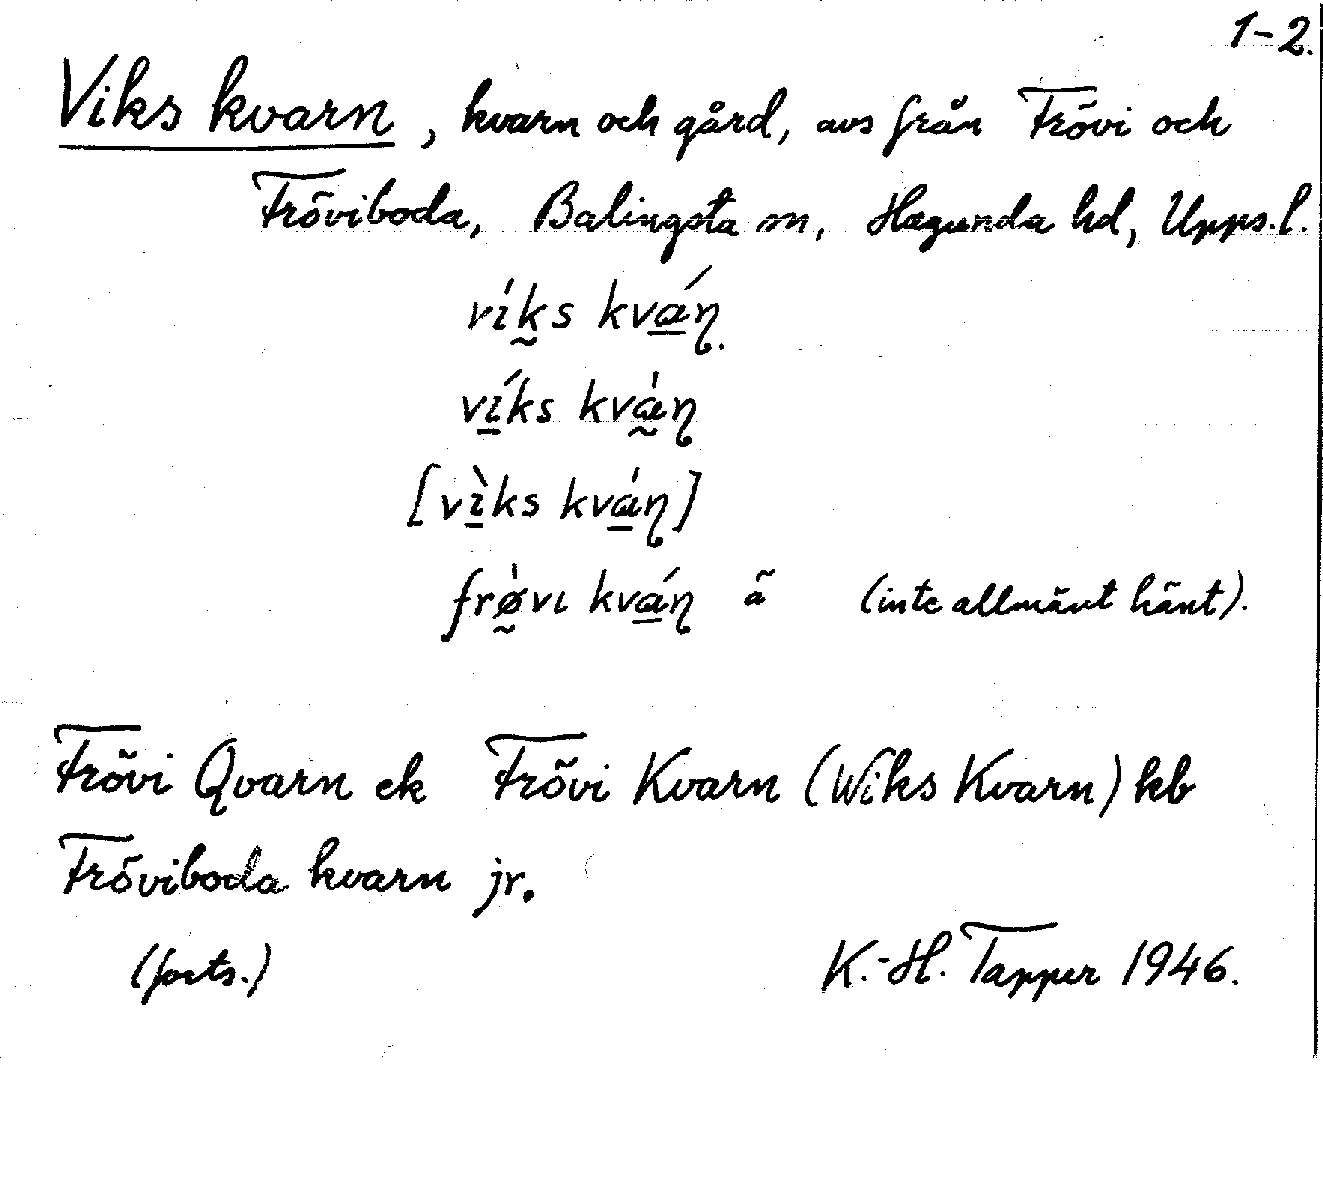 1-2.
Viks kvarn, kvarn och gård, avs från Frövi och
Fröviboda, Balingsta sn, Hagunda hd, Upps.l.
vík̰s kvá̱ɳ.
ví̱ks kvà̰ɳ
[vì̱ks kvá̱ɳ]
frø̰̀vɩ kvá̱ɳ ä (inte allmänt känt).
Frövi Qvarn ek Frövi Kvarn (Wiks Kvarn) kb
Fröviboda kvarn jr.
(forts.) K.-H. Tapper 1946.